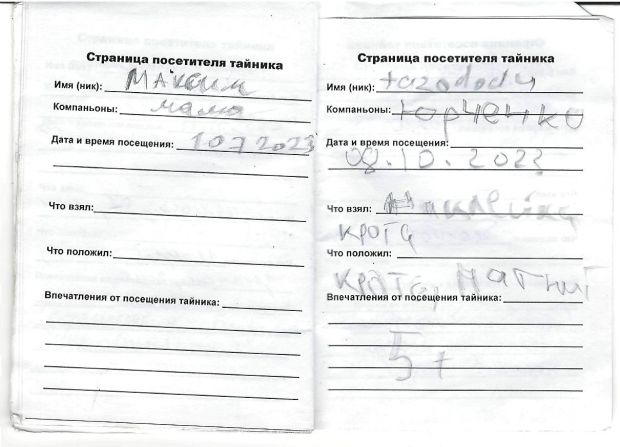 Страница посетителя тайника
Имя (ник): Максим
Компаньоны: мама
Дата и время посещения: 10 7 2023
Что взял:
Что положил:
Впечатления от посещения тайника:
Страница посетителя тайника
Имя (ник): tozododu
Компаньоны: Юрченко
Дата и время посещения:
08.10.2023
Что взял: наклейка
крота
Что положил:
магнит
Впечатления от посещения тайника:
5+